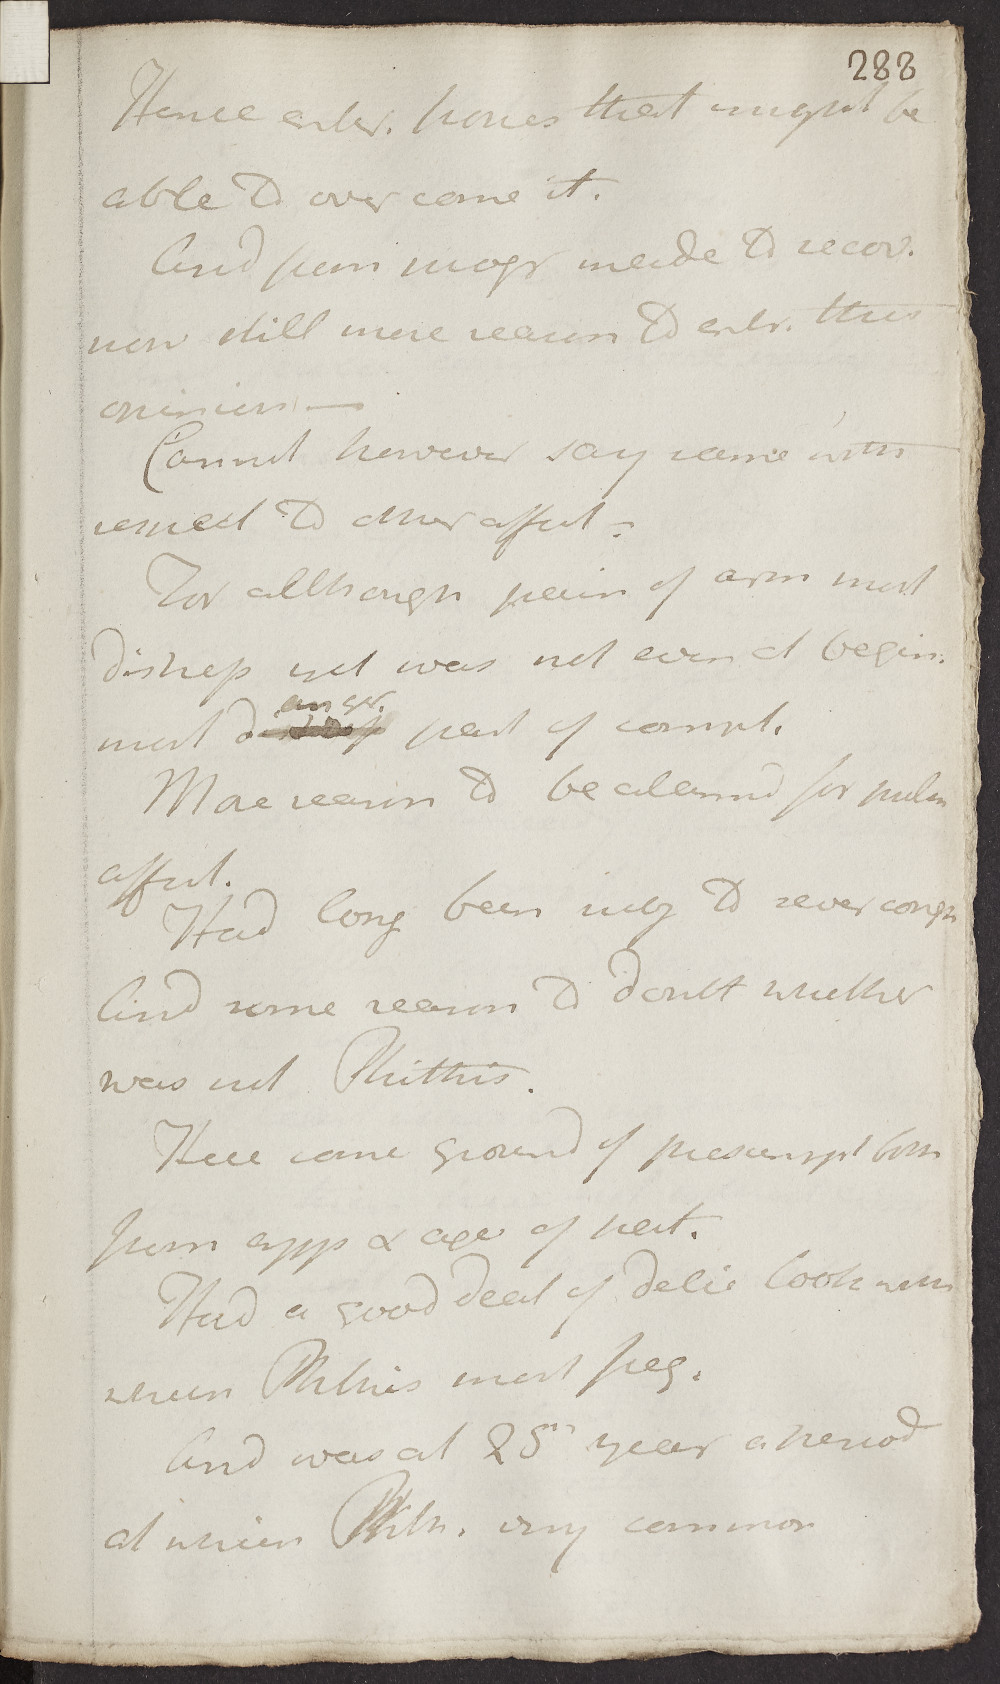 288
Hence enter. hopes that might be
able to overcome it.
And from progr made to recov.
now still more reason to enter. this
opinion —
Cannot however say same with
respect to other affect.
For although pain of arm most
distress yet was not even at begin.
most danger. part of compt.
More reason to be alarmd for pulm
affect.
Had long been subj to sever cough
And some reason to doubt whether
was not Phithis.
Here some ground of presumpt both
from app & age of pat.
Had a good deal of delic look with
which Phthis most freq.
And was at 25th year a period
at which Phth. very common